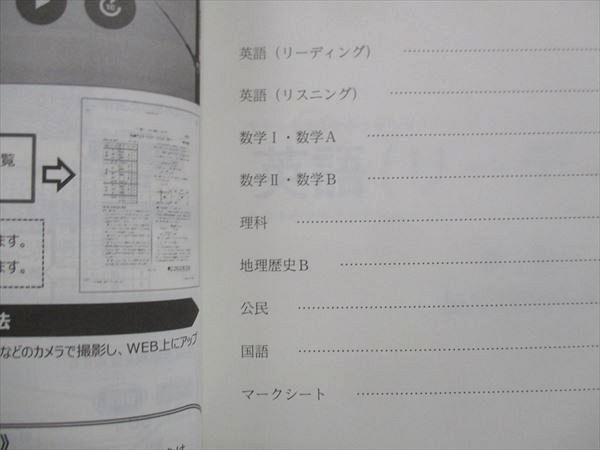 覧
ます。
ます。
法
などのカメラで撮影し、WEB上にアップ
》
英語（リーディング） ……………………
英語（リスニング） ……………………
数学Ⅰ・数学A ……………………
数学Ⅱ・数学B ……………………
理科 ……………………
地理歴史B ……………………
公民 ……………………
国語 ……………………
マークシート ……………………